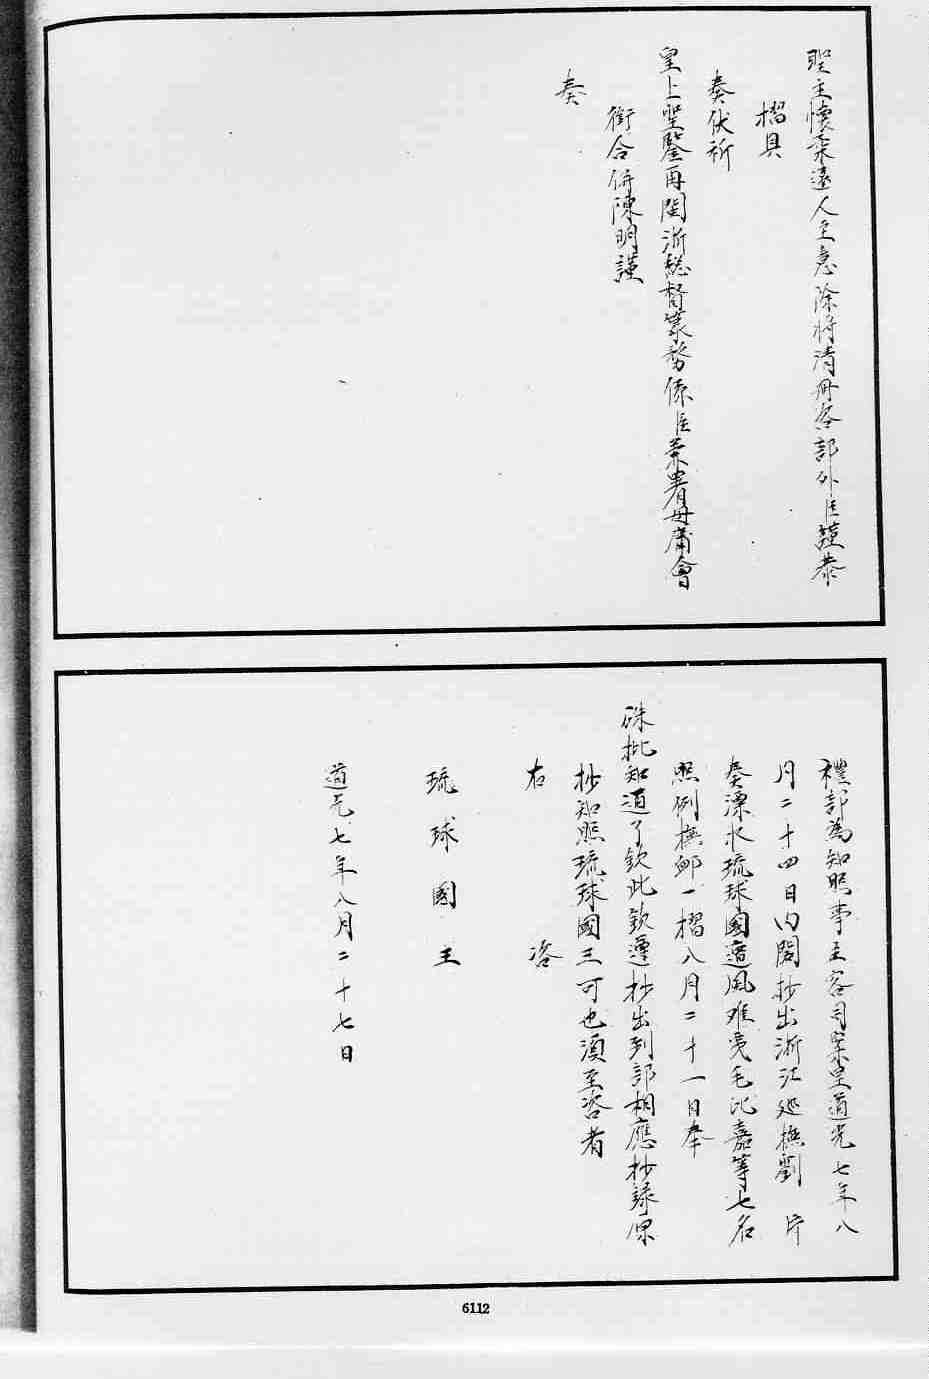 聖主懷柔遠人至意除將清冊咨部外臣謹恭
摺具
奏伏祈
皇上聖鑒再閩浙總督篆務係臣兼署毋庸會
銜合併陳明謹
奏
禮部為知照事主客司案呈道光七年八
月二十四日內閣抄出浙江巡撫劉 片
奏漂水琉球國遭風难夷毛比嘉等七名
照例撫卹一摺八月二十一日奉
硃批知道了欽此欽遵抄出到部相應抄錄原
抄知照琉球國王可也須至咨者
右 咨
琉球國王
道光七年八月二十七日
6112